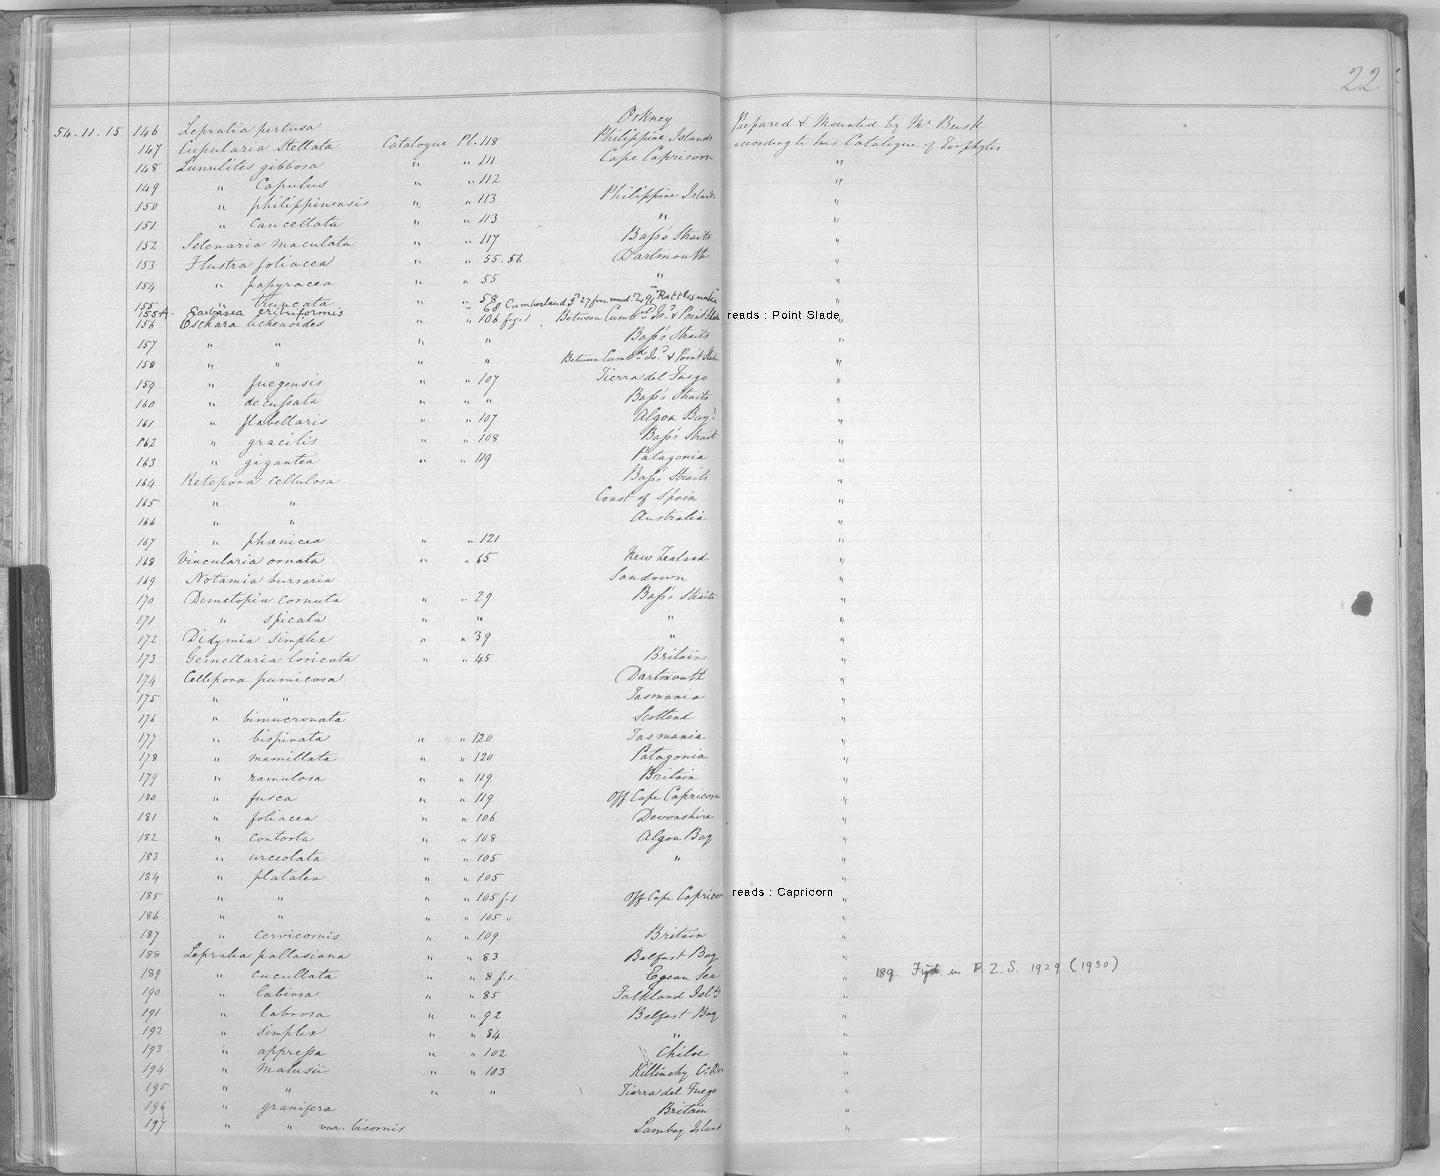 22
54.11.15 146 Lepralia pertusa Orkney Prepared & Mounted by Mr Busk
147 Cupularia Stellata Catalogue Pl. 118 Philippine Islands according to his Catalogue of Zoophytes
148 Lunulites gibbosa " " 111 Cape Capricorn "
149 " Capulus " " 112 "
150 " philippinensis " " 113 Philippine Islands "
151 " Cancellata " " 113 " "
152 Selenaria maculata " " 117 Bass's Straits "
153 Flustra foliacea " " 55.56 Dartmouth "
154 " papyracea " " 55 " "
155 " truncata " " 58 "
155A. Carbasea " 68 Cumberland Id 27 fms. "Rattlesnake"
156 Eschara lichenoides " " 106 fig. 1 Between Cumbd Is. & Point Slade reads : Point Slade "
157 " " " " Bass's Straits "
158 " " " " Between Cumbd Is. & Point Slade "
159 " fuegensis " " 107 Tierra del Fuego "
160 " decussata " " " Bass's Straits "
161 " flabellaris " " 107 Algoa Bay? "
162 " gracilis " " 108 Bass's Strait "
163 " gigantea " " 119 Patagonia "
164 Retepora cellulosa Bass's Straits "
165 " " Coast of Spain "
166 " " Australia "
167 " phœnicea " " 121 "
168 Vincularia ornata " " 65 New Zealand "
169 Notamia bursaria Sandown "
170 Dimetopia cornuta " " 29 Bass's Straits "
171 " spicata " " " " "
172 Didymia simplex " " 39 " "
173 Gemellaria loricata " " 45 Britain "
174 Cellepora pumicosa Dartmouth "
175 " " Tasmania "
176 " bimucronata Scotland "
177 " bispinata " " 120 Tasmania "
178 " mamillata " " 120 Patagonia "
179 " ramulosa " " 119 Britain "
180 " fusca " " 119 Off Cape Capricorn "
181 " foliacea " " 106 Devonshire "
182 " contorta " " 108 Algoa Bay "
183 " urceolata " " 105 " "
184 " platalea " " 105 "
185 " " " " 105 f.1 Off Cape Capricorn reads : Capricorn "
186 " " " " 105 " "
187 " cervicornis " " 109 Britain "
188 Lepralia pallasiana " " 83 Belfast Bay "
189 " cucullata " " 8 f.1. Egean Sea " 189. Figd. in P.Z.S. 1929 (1930)
190 " labiosa " " 85 Falkland Islds "
191 " labrosa " " 92 Belfast Bay "
192 " simplex " " 84 " "
193 " appressa " " 102 Chiloe "
194 " Malusii " " 103 Killinchy Co. Do "
195 " " " " Tierra del Fuego "
196 " granifera Britain "
197 " " var. bicornis Lambay Island "